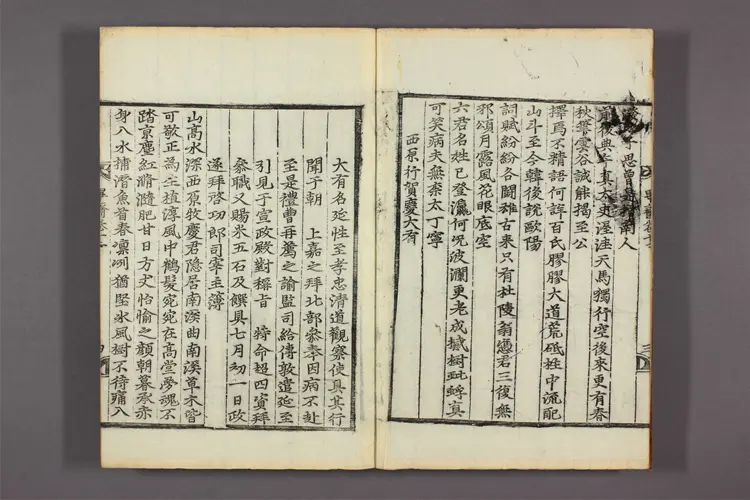 思曾
前後與
真太史渥洼天馬獨行空後來更有春
秋警雲谷誠能揭至公
擇焉不精語何詳百氏膠膠大道荒砥柱中流配
山斗至今韓後說歐陽
詞賦紛紛各鬪雄古來只有杜陵翁憑君三復無
邪頌月露風花眼底空
六君名姓已登瀛何況波瀾更老成撼樹蚍蜉真
可笑病夫無柰太丁寧
西原行賀慶大有
大有名延性至孝忠清道觀察使具其行
聞于朝 上嘉之拜北部叅奉因病不赴
至是禮曹再薦之諭監司給傳敦遣延至
引見于宣政殿對稱旨 特命超四資拜
叅職又賜米五石及饌具七月初一日政
遂拜啓功郎司宰主簿
山高水深西原牧慶君隱居南溪曲南溪草木皆
可敬正為生植淳風中鶴髮宛宛在高堂夢魂不
踏京塵紅瀡瀡肥甘日方丈怡愉之顏朝暮承亦
身入水捕潛魚首春凛冽猶堅氷風樹不待痛入